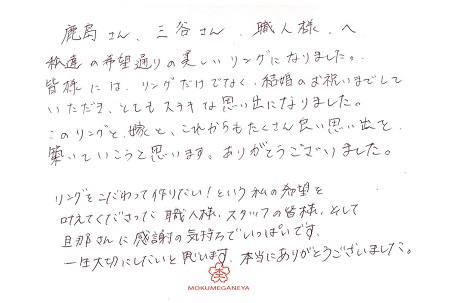 鹿島さん、三谷さん、職人様、へ
私達の希望通りの美しいリングになりました。
皆様には、リングだけでなく、結婚のお祝いまでして
いただき、とてもステキな思い出になりました。
このリングと、嫁と、これからもたくさん良い思い出を
築いていこうと思います。ありがとうございました。
リングをこだわって作りたい!という私の希望を
叶えてくださった職人様、スタッフの皆様、そして
旦那さんに感謝の気持ちでいっぱいです。
一生大切にしたいと思います。本当にありがとうございました。
MOKUMEGANEYA